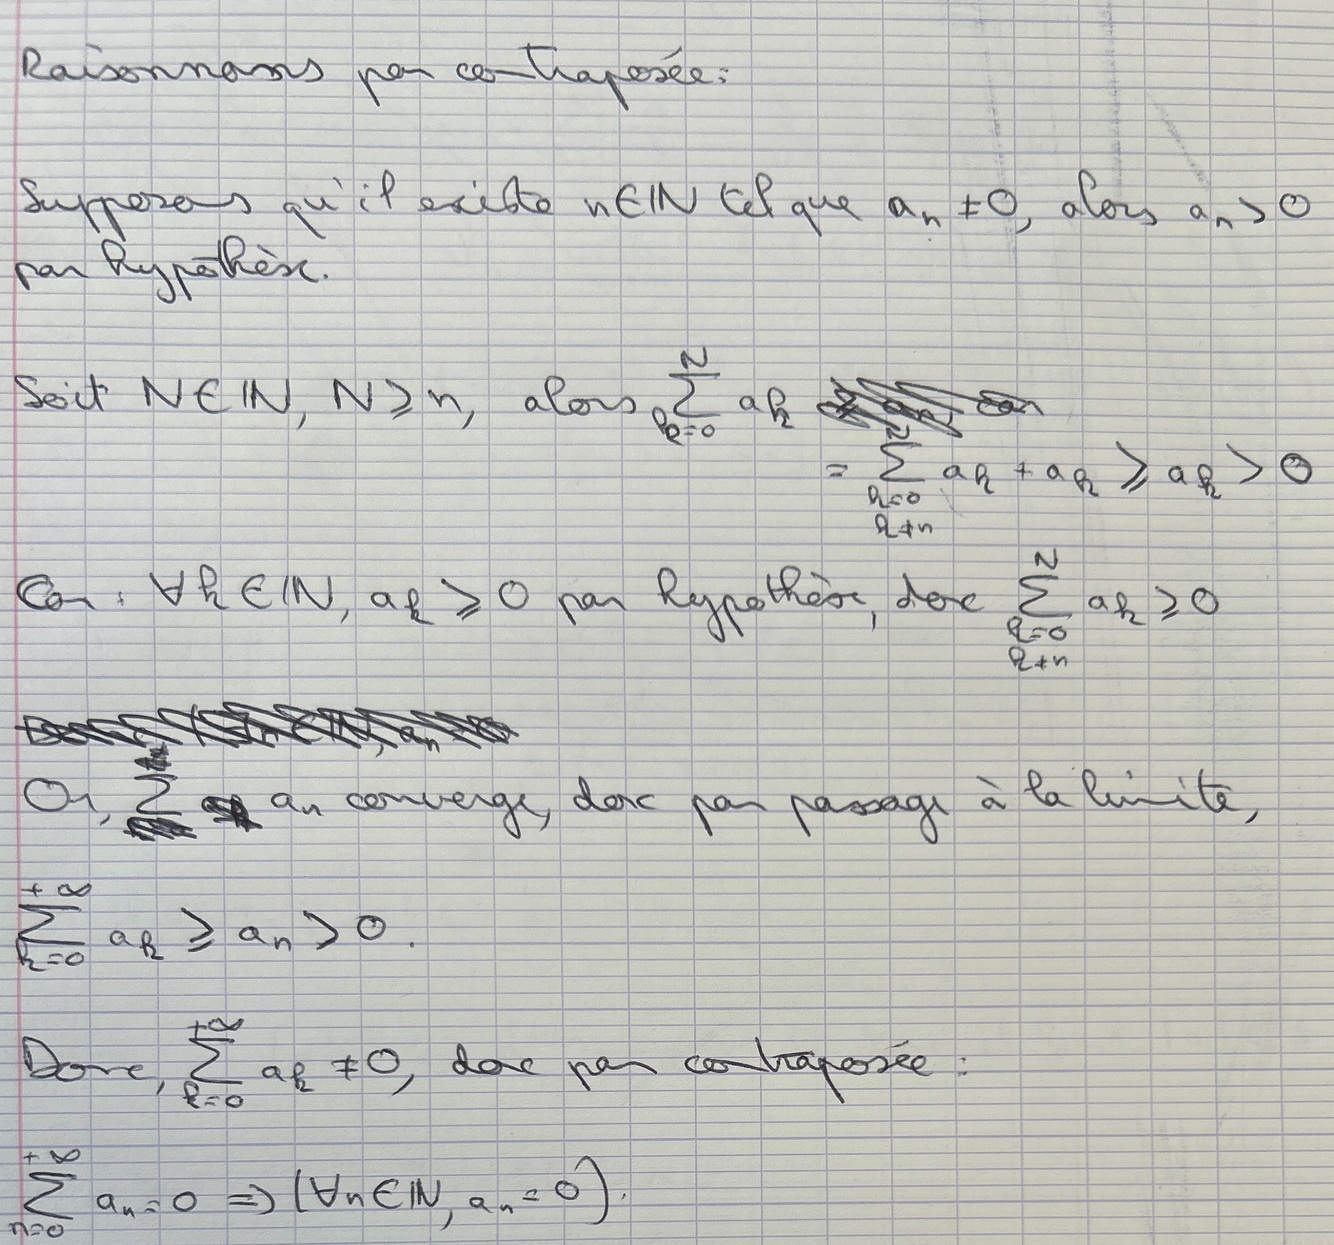 Raisonnons par contraposée :
Supposons qu'il existe n∈ℕ tel que aₙ ≠ 0, alors aₙ > 0
par hypothèse.
Soit N∈ℕ, N ≥ n, alors ∑_{k=0}^{N} aₖ
= ∑_{k=0, k≠n}^{N} aₖ + aₖ ≥ aₖ > 0
Car : ∀k∈ℕ, aₖ ≥ 0 par hypothèse, donc ∑_{k=0, k≠n}^{N} aₖ ≥ 0
Or, ∑ aₙ converge, donc par passage à la limite,
∑_{k=0}^{+∞} aₖ ≥ aₙ > 0.
Donc, ∑_{k=0}^{+∞} aₖ ≠ 0, donc par contraposée :
∑_{n=0}^{+∞} aₙ = 0 ⇒ (∀n∈ℕ, aₙ = 0).